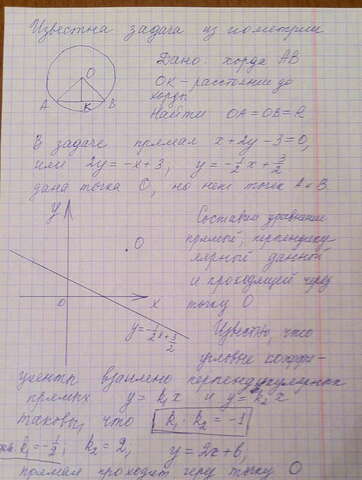 Известна задача из геометрии
O
A
K
B
Дано: хорда AB
OK - расстоянии до
хорды
Найти OA = OB = R
В задаче прямая x + 2y - 3 = 0,
или 2y = -x + 3; y = -1/2 x + 3/2
дана точка O, но нет точек A и B.
y
O
0
x
y = -1/2 x + 3/2
Составим уравнение
прямой, перпендику
лярной данной
и проходящей через
точку O
Известно, что
угловые коэффи-
циенты взаимно перпендикулярных
прямых y = k₁x и y = k₂x
таковы, что k₁ · k₂ = -1
k₁ = -1/2, k₂ = 2, y = 2x + b,
прямая проходит через точку O